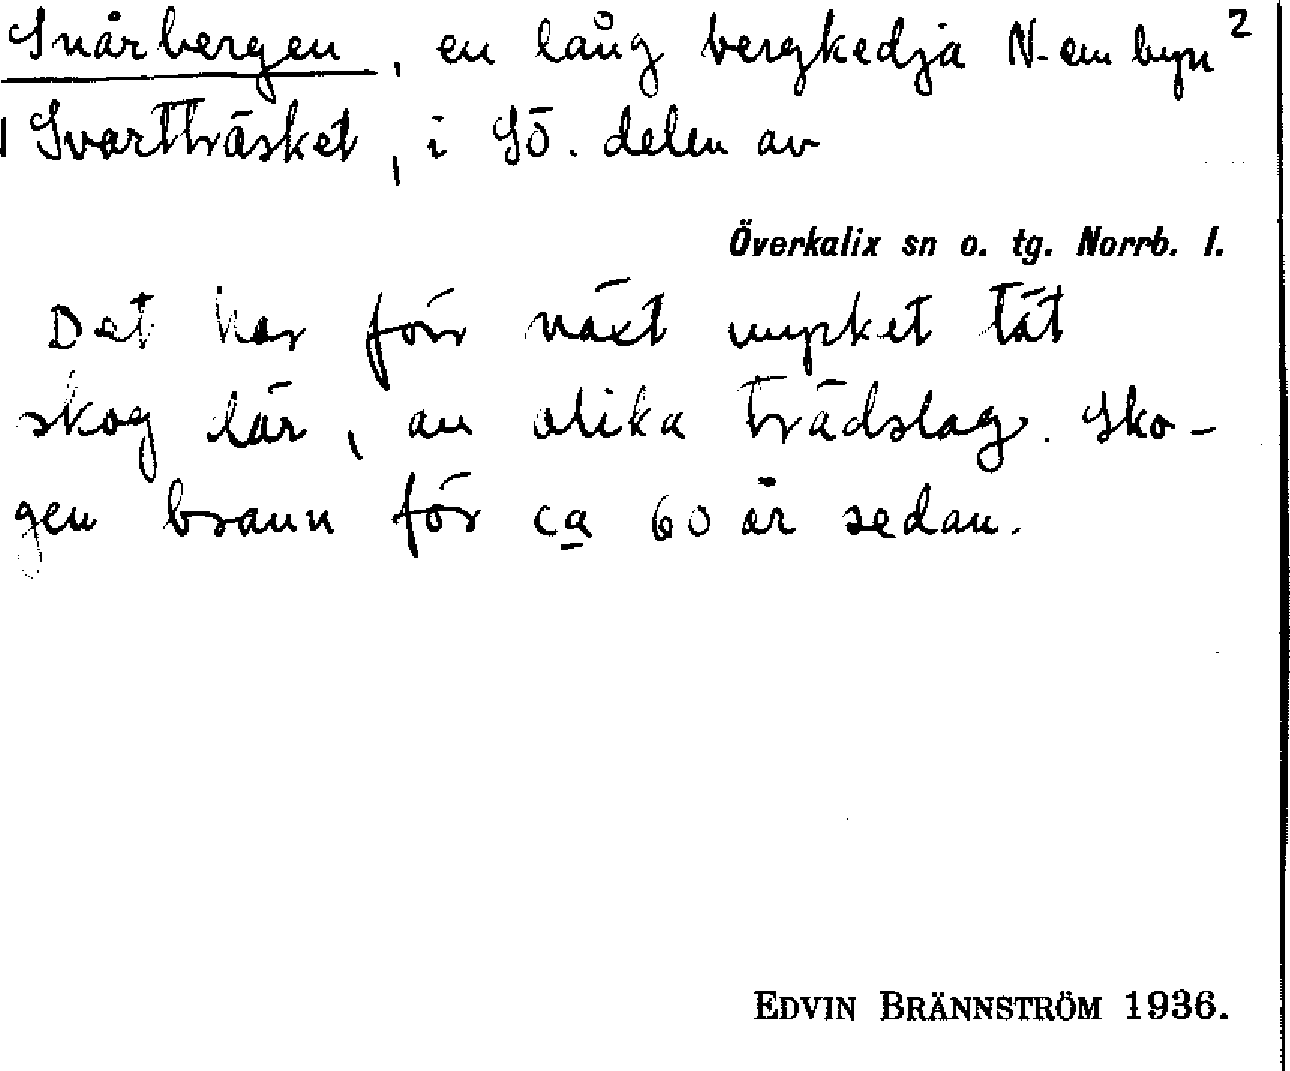 Snårbergen, en lång bergkedja N. om byn 2
Svartträsket, i SÖ. delen av
Överkalix sn o. tg. Norrb. l.
Det har förr växt mycket tät
skog där, av olika trädslag. Sko-
gen brann för ca 60 år sedan.
EDVIN BRÄNNSTRÖM 1936.